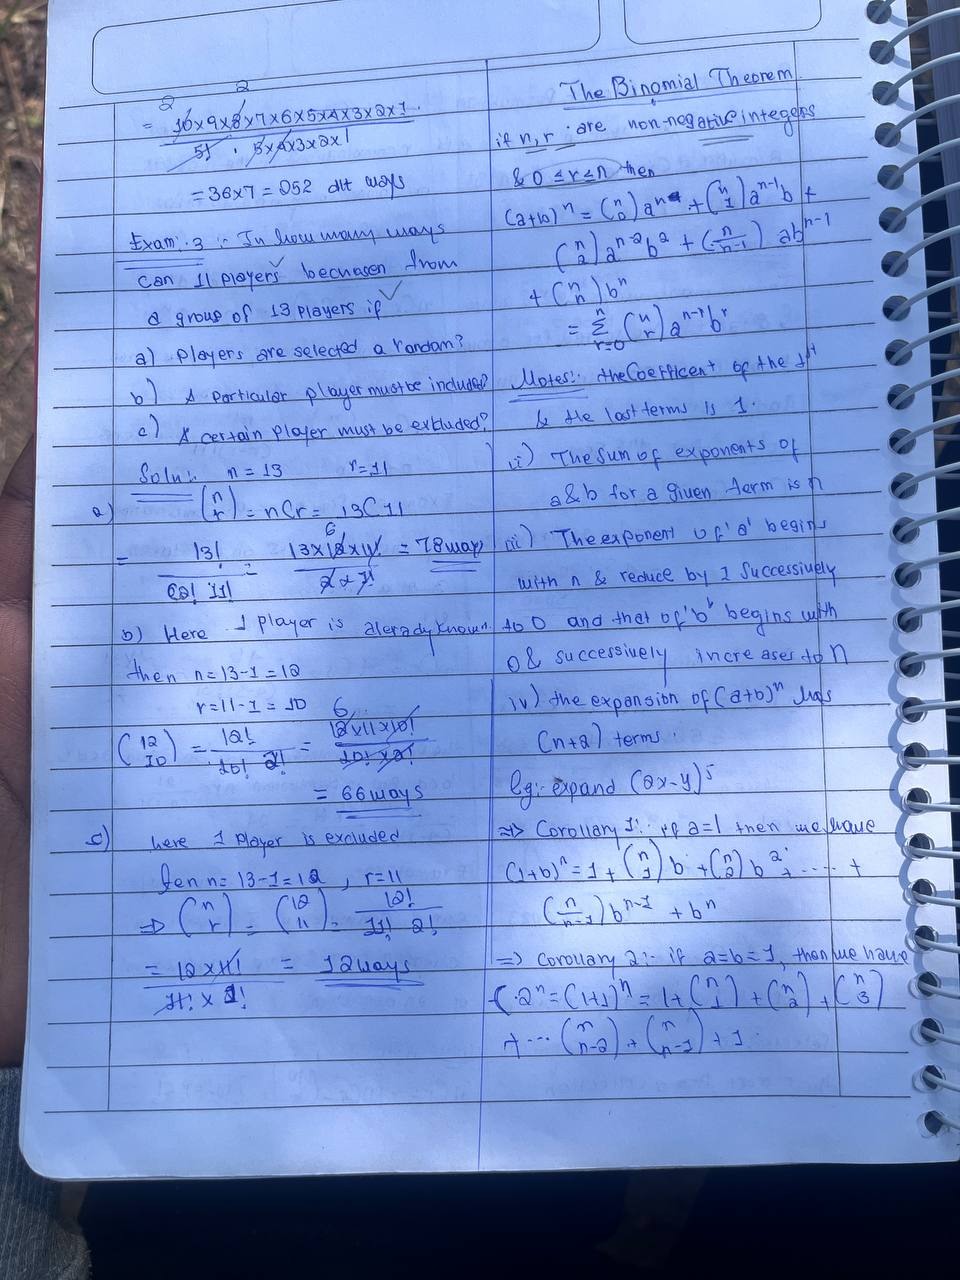 2 2
= 10x9x8x7x6x5x4x3x2x1
5! . 5x4x3x2x1
= 36x7 = 252 dft ways
Exam.3 :- In how many ways
can 11 players bechosen from
a group of 13 players if
a) players are selected a random?
b) A particular player must be included?
c) A certain player must be excluded?
Soln:- n = 13 r=11
a) (n r) = nCr = 13C11
= 13! / (2! 11! = 13x12x11! / 2x1! = 78 ways
6
b) Here 1 player is aleradyknown
then n=13-1=12
r=11-1=10
(12 10) = 12! / 10! 2! = 12x11x10! / 10!x2!
6
= 66 ways
c) here 1 Player is excluded
n=13-1=12 , r=11
=> (n r) = (12 11) = 12! / 11! 2!
= 12x11! / 11! x 1! = 12ways
The Binomial Theorem
if n, r are non-negative integers
& 0 ≤ r ≤ n then
(a+b)^n = (n 0) a^n + (n 1) a^n-1 b +
(n 2) a^n-2 b^2 + (n n-1) ab^n-1
+ (n n) b^n
= n Σ r=0 (n r) a^n-r b^r
Notes:- the Coefficent of the 1st
& the last terms is 1.
ii) The Sum of exponents of
a & b for a given term is n
iii) The exponent of 'a' begins
with n & reduce by 1 Successively
to 0 and that of 'b' begins with
0 & successively increases to n
iv) the expansion of (a+b)^n has
(n+2) terms.
Eg:- expand (2x-y)^5
=> Corollary 1:- if a=1 then we have
(1+b)^n = 1 + (n 1) b + (n 2) b^2 + ..... +
(n n-1) b^n-1 + b^n
=> Corollary 2:- if a=b=1, then we have
2^n = (1+1)^n = 1 + (n 1) + (n 2) + (n 3)
+ ... (n n-2) + (n n-1) + 1